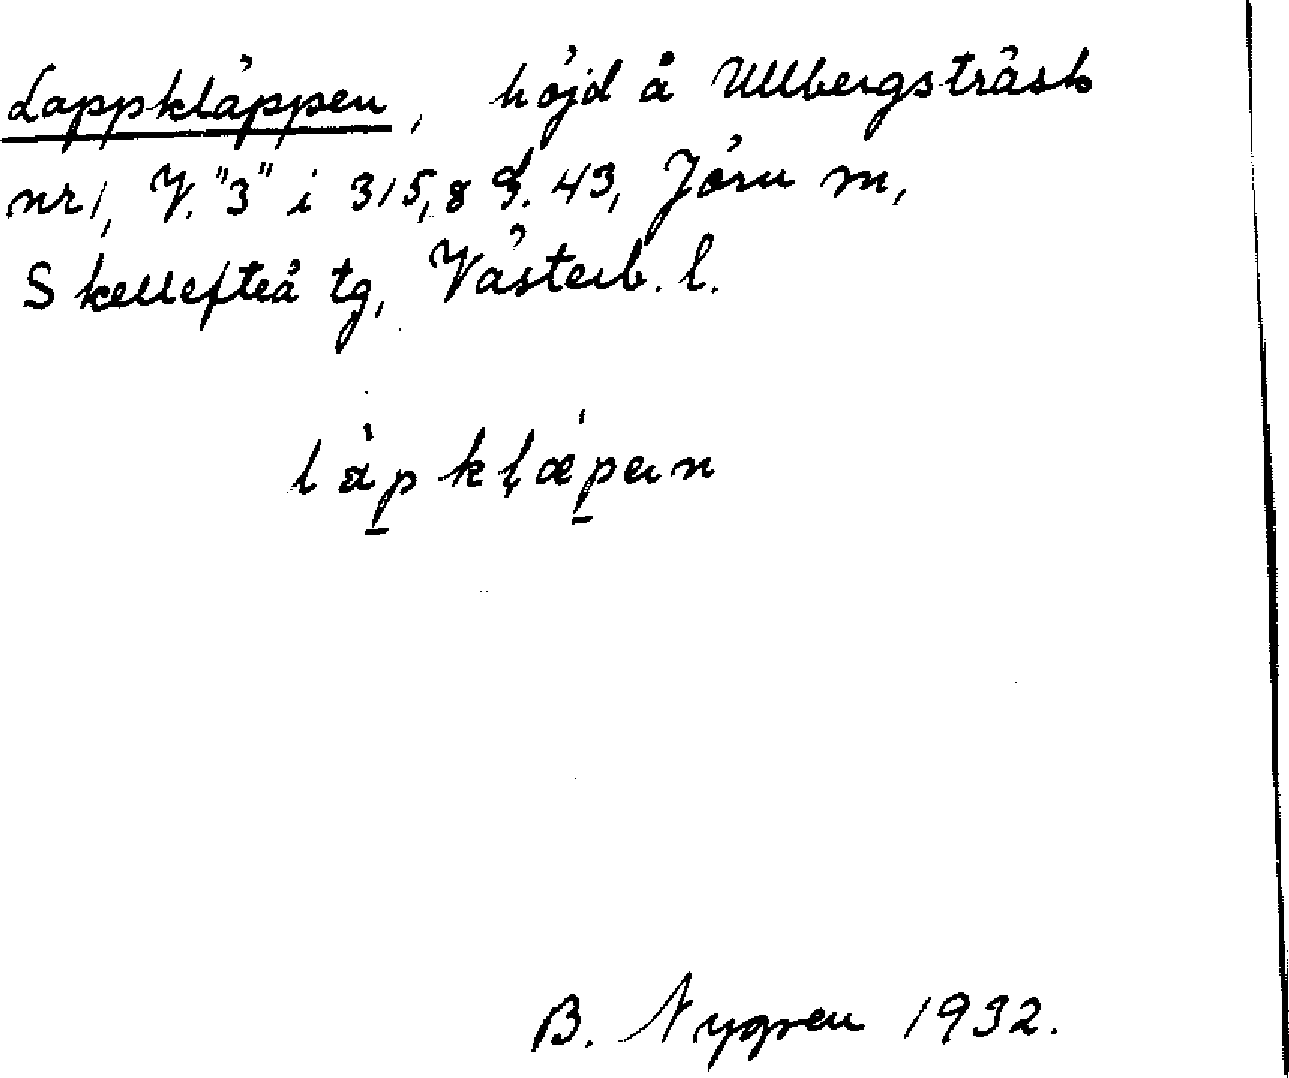 Lappkläppen, höjd å Ullbergsträsk
nr 1, V. "3" i 315,8 g. 43, Jörn m,
Skellefteå tg, Västerb. l.
làpklæ̀pen
B. Nygren 1932.